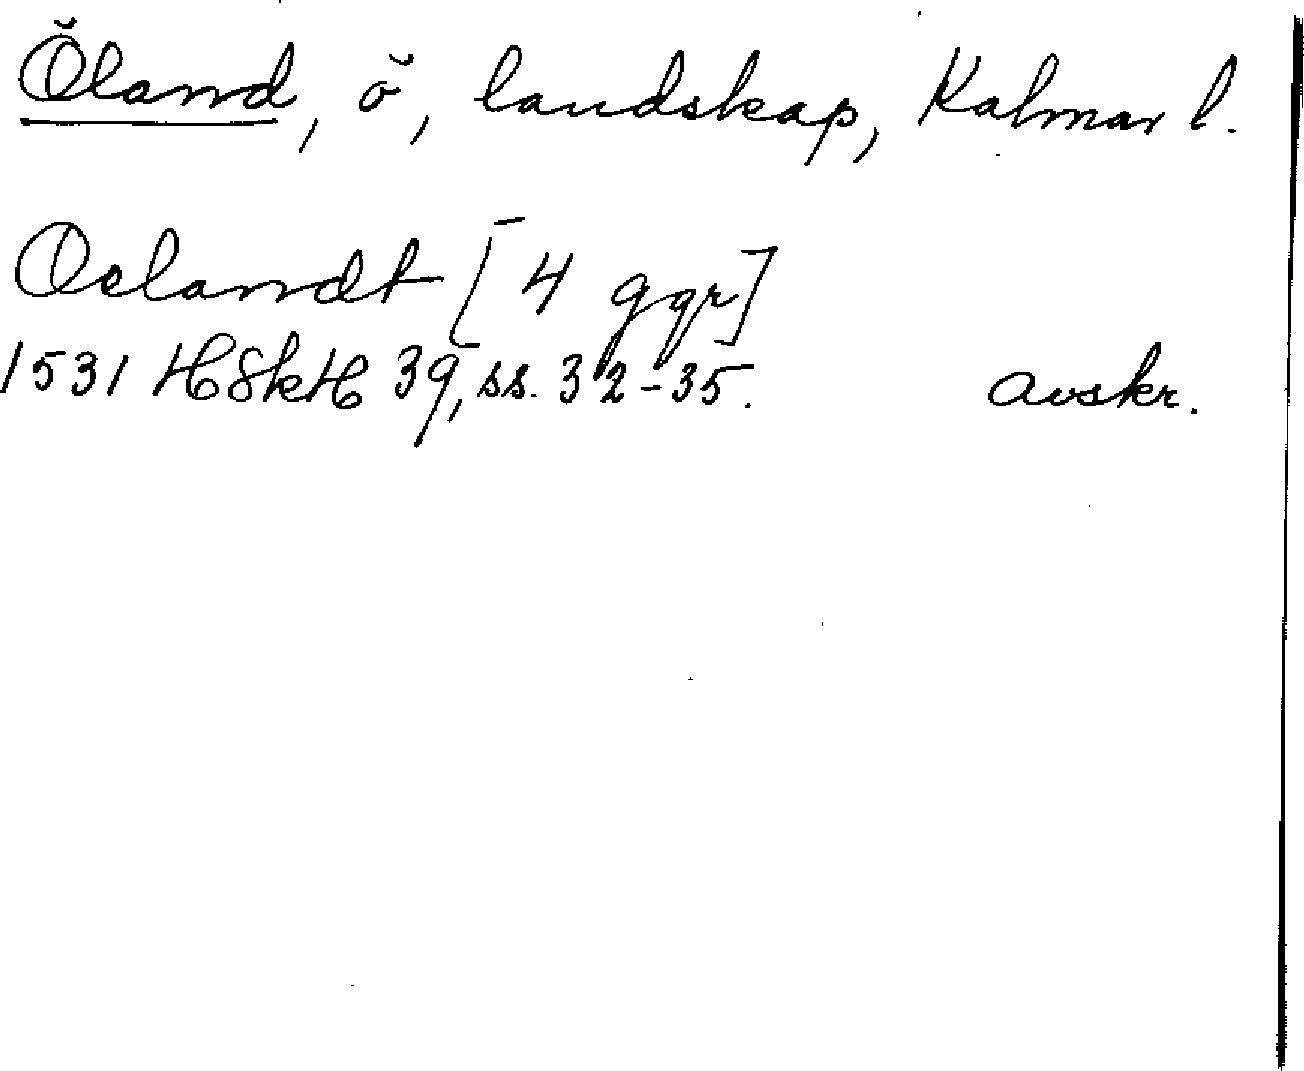 Öland, ö, landskap, Kalmar l.
Oelandt [4 ggr]
1531 HSkH 39, ss. 32-35. avskr.